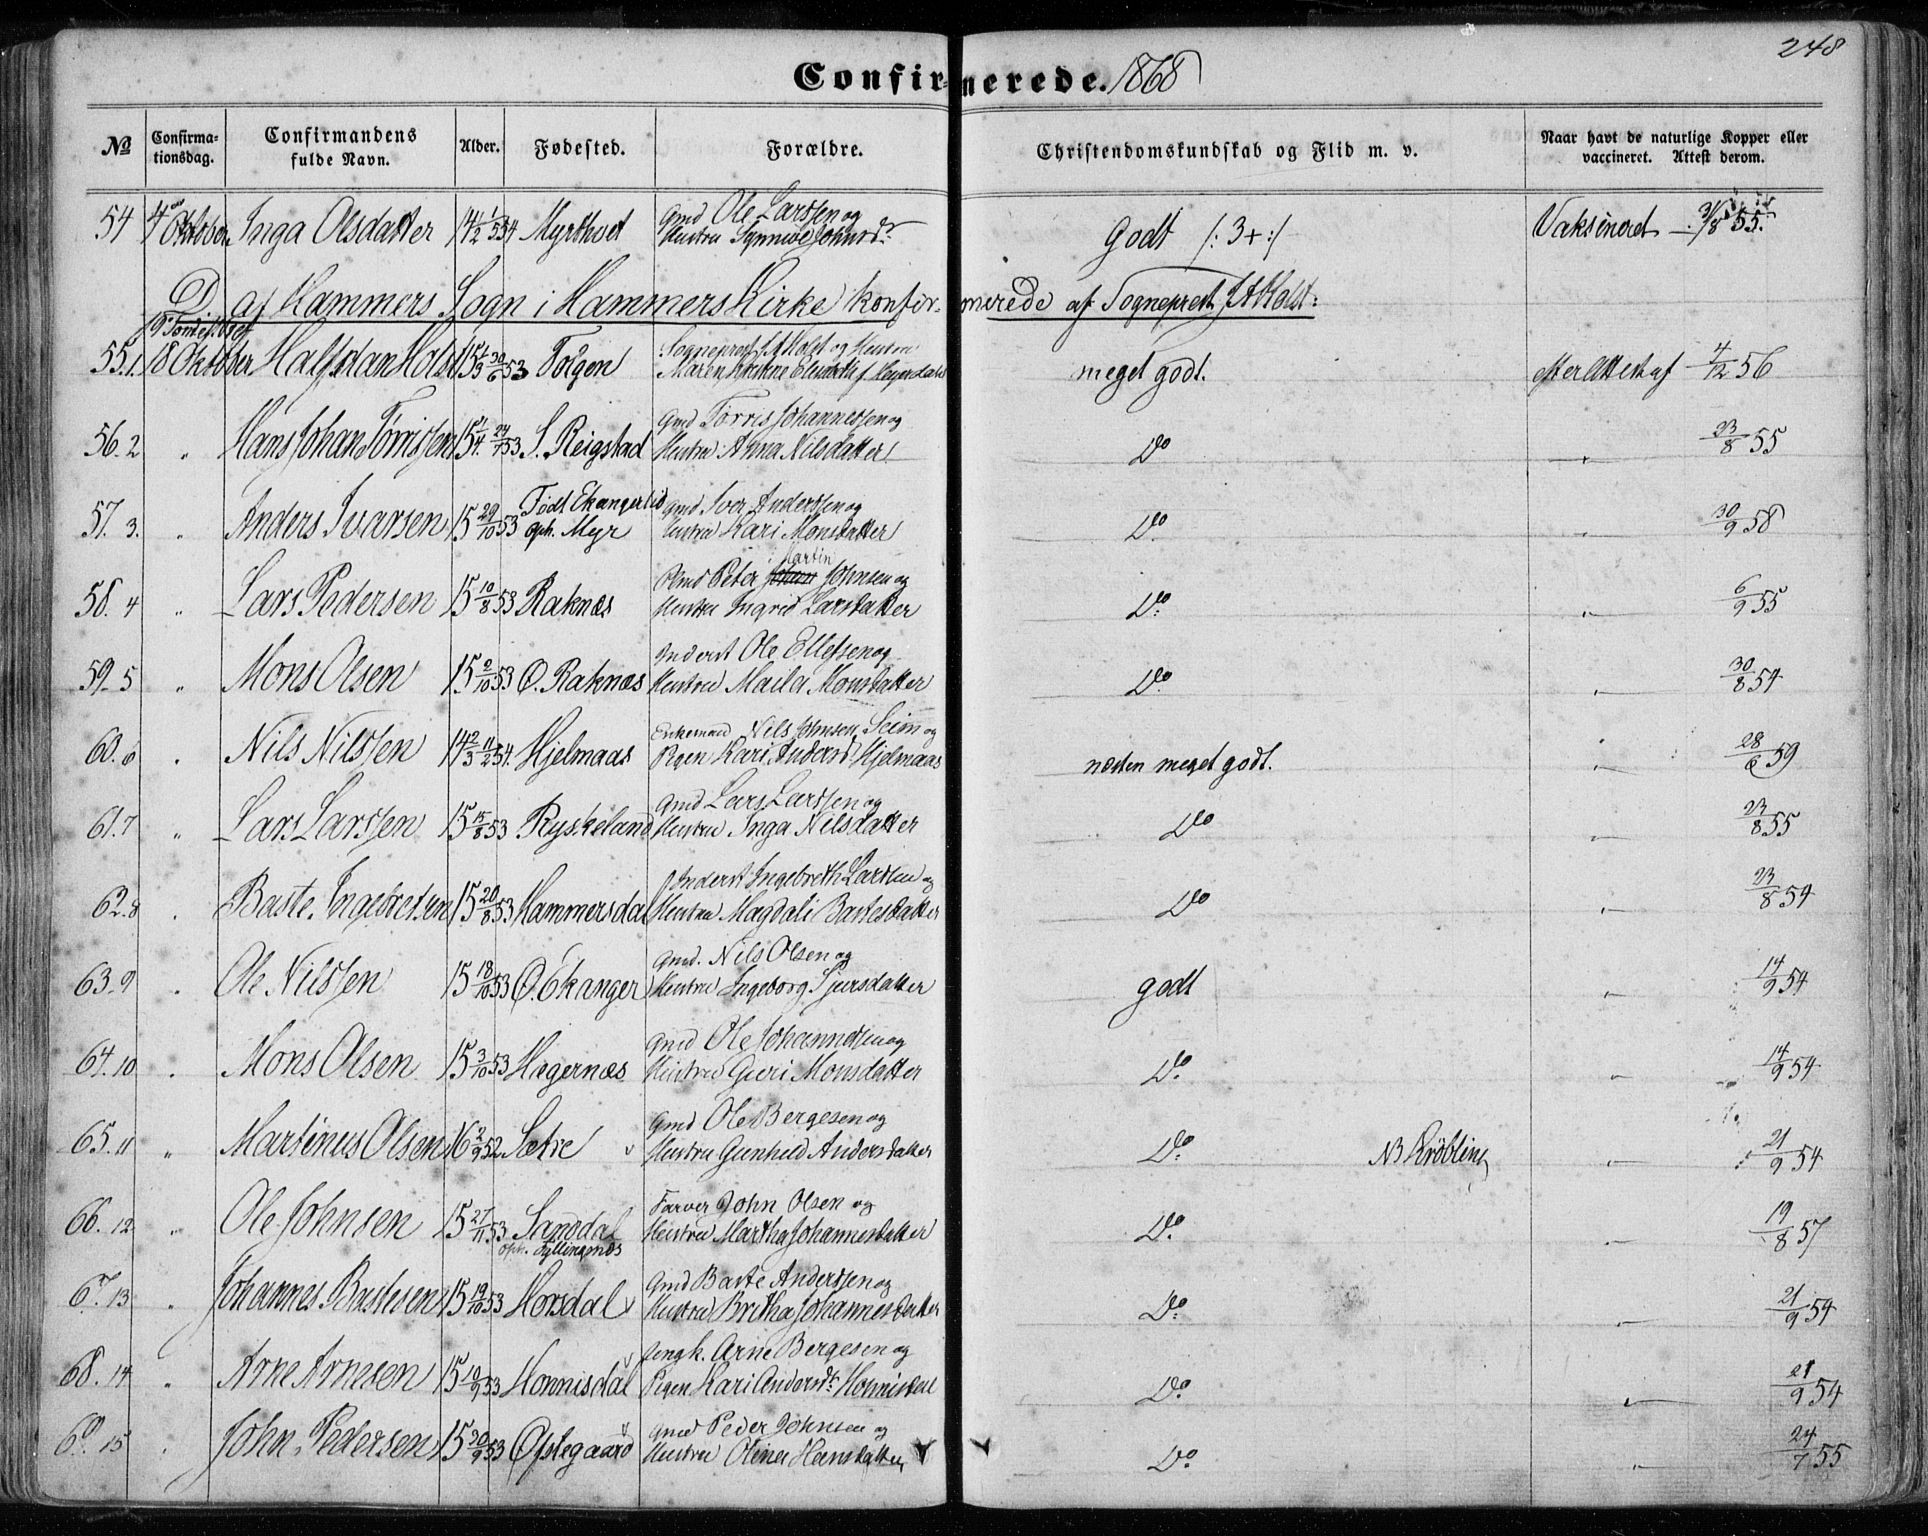 248
Confirmerede. 1868
№ Confirmationsdag. Confirmandens fulde Navn. Alder. Fødested. Forældre. Christendomskundskab og Flid m. v. Naar havt de naturlige Kopper eller vaccineret. Attest derom.
54 4 Oktober Inga Olsdatter 14 1/2 5/1 54 Myrthvet Gmd Ole Larssen og Hustru Synneve Johnsd. Godt /: 3+ :/ Vaksineret 31/8 55.
D af Hammers Sogn i Hammers Kirke konfirmerede af Sogneprest J A Holst:
55.1 18 Oktober Halfdan Holst 15 1/3 30/6 53 Torgen Sogneprest J A Holst og Hustru Maren meget godt. efter Attest af 4/12 56
56.2 " Hans Johan Tørrissen 15 1/4 24/7 53 S. Reigstad Gmd Tørris Johannessen og Hustru Anna Nilsdatter Do " 23/8 55
57.3. " Anders Ivarsen 15 29/10 53 Født Ekangerlid oph. Myr Gmd Iver Anderssen og Hustru Kari Monsdatter Do 30/9 58
58.4 " Lars Pedersen 15 10/8 53 Raknæs Peter Martin Johnsen og Hustru Ingrid Larsdatter Do: " 6/9 55
59.5 " Mons Olsen 15 2/10 53 O. Raknæs Inderst Ole Ellefsen og Hustru Maila Monsdatter Do " 30/8 54
60.6 " Nils Nilssen 14 2/3 11/2 54. Hjelmaas Enkemand Nils Johnsen Seim og Pigen Kari Andersd. Hjelmaas næsten meget godt. " 28/6 59
61.7 " Lars Larssen 15 15/8 53 Ryskeland Gmd Lars Larssen og Hustru Inga Nilsdatter Do " 23/8 55
62.8 " Baste Ingebretsen 15 20/8 53 Hammersdal Inderst Ingebreth Larssen og Hustru Magdali Bastesdatter Do " 23/8 54
63.9 " Ole Nilssen 15 18/10 53 O. Ekanger Gmd. Nils Olsen og Hustru Ingeborg Sjursdatter godt " 14/9 54
64.10 " Mons Olsen 15 3/10 53 Hagernæs Gmd Ole Johannessen og Hustru Guri Monsdatter Do " 14/9 54
65.11 " Martinus Olsen 16 2/9 52 Sætre Gmd Ole Bergesen og Hustru Gunhild Andersdatter Do: NB Krøbling " 21/9 54
66.12 " Ole Johnsen 15 27/11 53 Sandal oph. Fyllingsnæs Farver John Olsen og Hustru Martha Johannesdatter Do. " 19/8 57
67.13 " Johannes Bastesen 15 19/10 53 Horsdal Gmd Baste Anderssen og Hustru Britha Johannesdatter Do: " 21/9 54
68.14 " Arne Arnesen 15 10/9 53 Honnisdal Ungk. Arne Bergesen og Pigen Kari Andersd. Honnisdal Do. " 21/9 54
69.15 " John Pedersen 15 20/9 53 Øfstegaard Gmd Peder Johnsen og Hustru Olina Hansdatter Do " 24/7 55